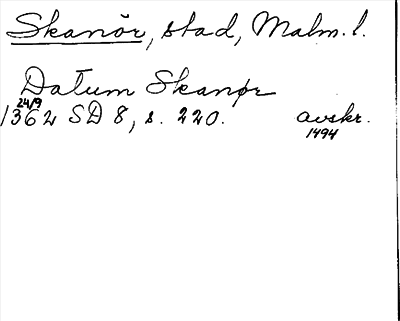 Skanör, stad, Malm. l.
Datum Skanør
24/9
1362 SD 8, s. 220. avskr.
1494